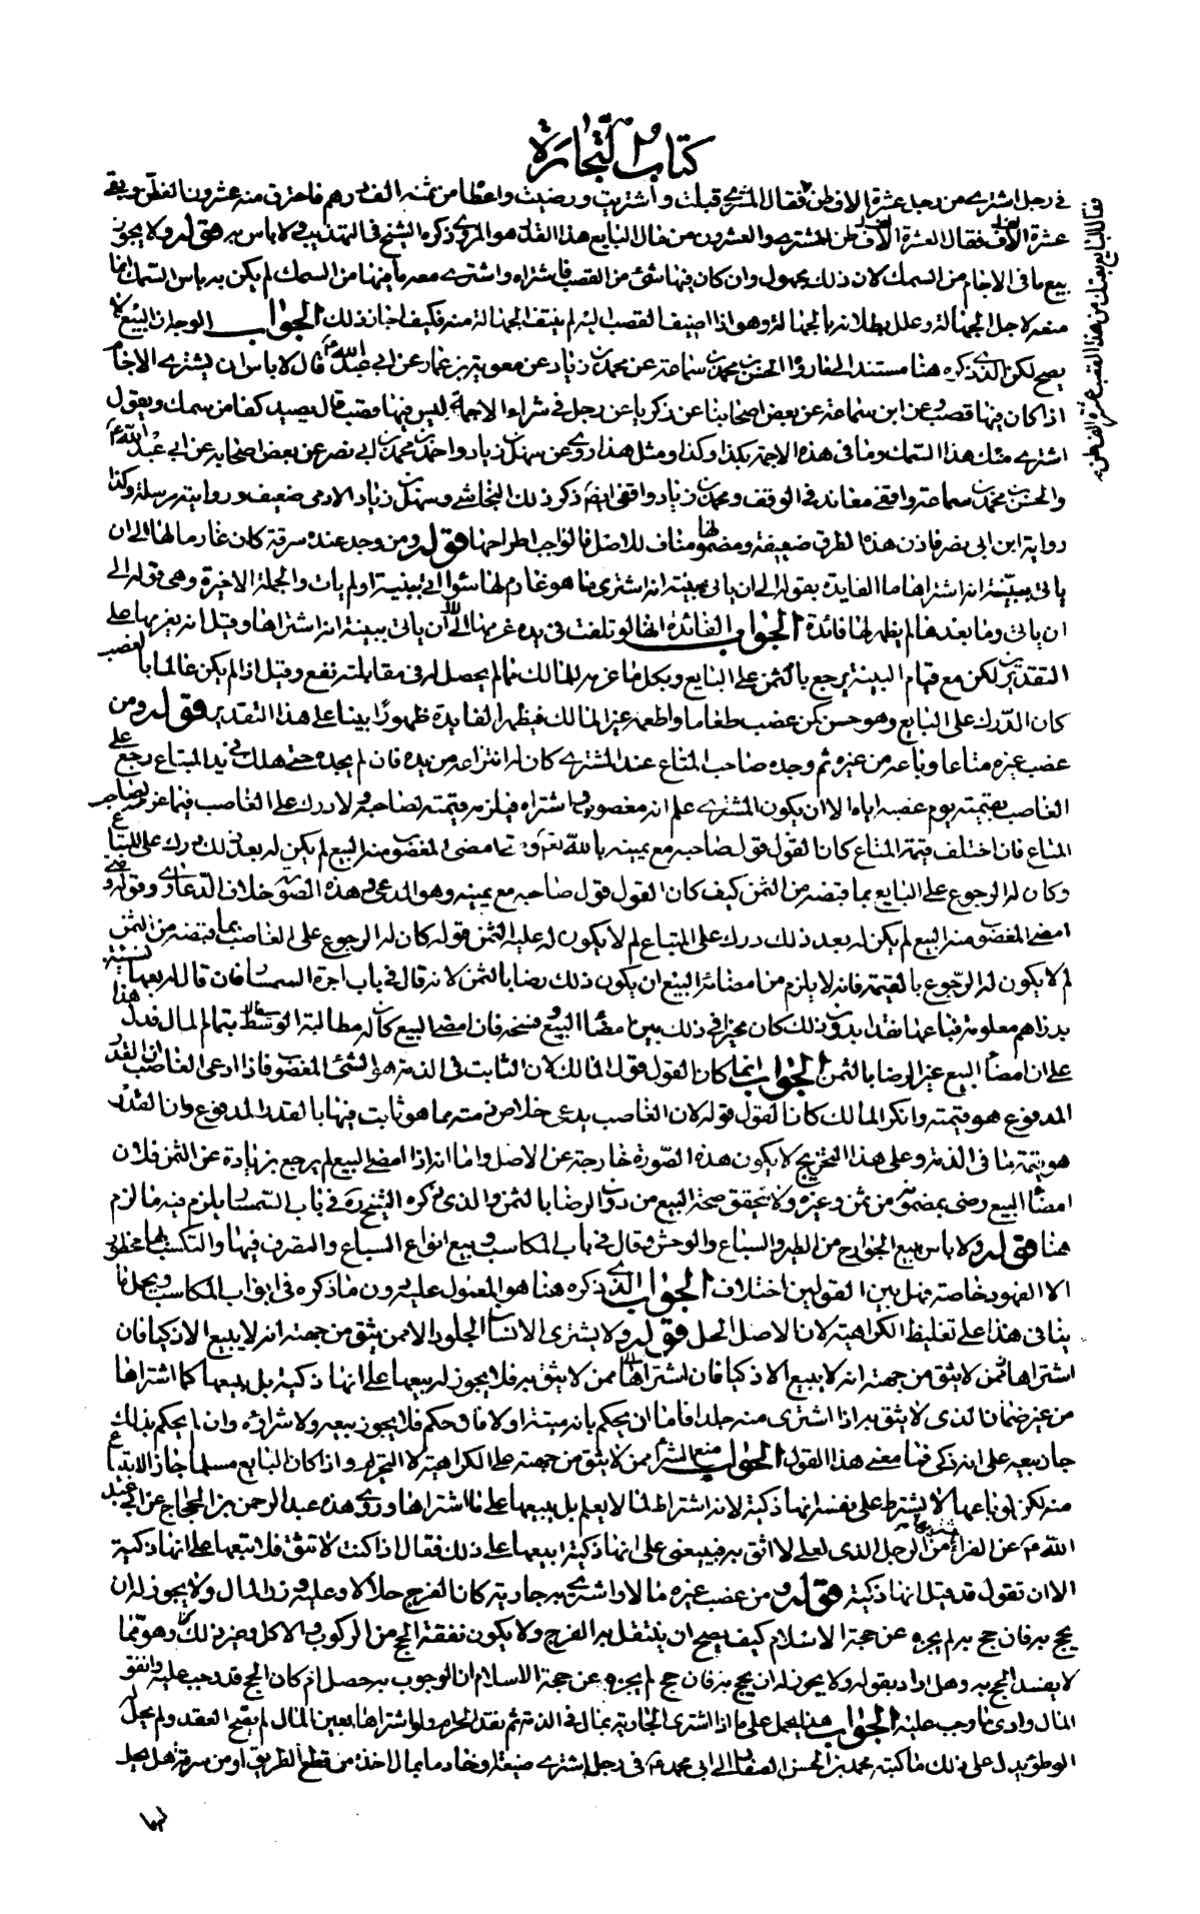 كتاب التجارة
في رجل اشترى من رجل عشرة الاف طن فقال المشترى قبلت واشتريت ورضيت واعطا من ثمنه الف درهم فاحترق منه عشرون الف طن وبقى
عشرة الاف فقال العشرة الاف طن للمشترى والعشرون من مال البايع هذا القدر هو المروى ذكره الشيخ في التهذيب ولا باس به قوله ولا يجوز
بيع ما فى الاجام من السمك لان ذلك مجهول وان كان فيها شئ من القصب فاشتراه واشترى معه ما فيها من السمك لم يكن به باس السمك انما
منعه لاجل الجهالة وعلل بطلانه بالجهالة وهو اذا اضيف القصب اليه لم ينتف الجهالة منه فكيف اجاز ذلك الجواب الوجه ان البيع لا
يصح لكن الذى ذكره هنا مستند الى ما رواه الحسن بن محمد بن سماعة عن محمد بن زياد عن معوية بن عمار عن ابى عبد الله ع قال لا باس ان يشترى الاجام
اذا كان فيها قصب وعن ابن سماعة عن بعض اصحابنا عن زكريا عن رجل فى شراء الاجمة ليس فيها قصب قال يصيد كفا من سمك ويقول
اشترى منك هذا السمك وما فى هذه الاجمة بكذا وكذا ومثل هذا روى عن سهل بن زياد واحمد بن محمد بن ابى نصر عن بعض اصحابه عن ابى عبد الله ع
والحسن بن محمد بن سماعة واقفى معاند فى الوقف ومحمد بن زياد واقفى ايضا ذكر ذلك النجاشى وسهل بن زياد الادمى ضعيف وروايته مرسلة وكذا
رواية ابن ابى نصر فاذن هذه الطرق ضعيفة ومضمونها مناف للاصل فالواجب اطراحها قوله ومن وجد عنده سرقة كان غارما لها الى ان
ياتى ببينة انه اشتراها ما الفايدة بقوله الى ان ياتى ببينة انه اشترى ما هو غارم لها سواء اتى ببينة او لم يات والجملة الاخيرة وهى قوله الى
ان ياتى وما بعدها لم يظهر لها فائدة الجواب الفائدة انها لو تلفت فى يده غرمها الى ان ياتى ببينة انه اشتراها وقيل انه يغرمها على
التقديرين لكن مع قيام البينة يرجع بالثمن على البايع وبكل ما غرمه للمالك مما لم يحصل له فى مقابلته نفع وقيل اذا لم يكن عالما بالغصب
كان الدرك على البايع وهو حسن كمن غصب طعاما واطعمه غير المالك فيظهر الفايدة ظهورا بينا على هذا التقدير قوله ومن
غصب غيره متاعا وباعه من غيره ثم وجده صاحب المتاع عند المشترى كان له انتزاعه من يده فان لم يجده حتى هلك فى يد المبتاع رجع على
الغاصب بقيمته يوم غصبه اياه الا ان يكون المشترى علم انه مغصوب واشتراه فيلزمه قيمته لصاحبه ولا درك على الغاصب فيما غرمه لصاحب
المتاع فان اختلف فى قيمة المتاع كان القول قول صاحبه مع يمينه بالله تعالى ومتى امضى المغصوب منه البيع لم يكن له بعد ذلك درك على المبتاع
وكان له الرجوع على البايع بما قبضه من الثمن كيف كان القول قول صاحبه مع يمينه وهو المدعى وهذه الصورة خلاف الدعاوى وقوله ومتى
امضى المغصوب منه البيع لم يكن له بعد ذلك درك على المبتاع لم لا يكون له عليه الثمن قوله كان له الرجوع على الغاصب بما قبضه من الثمن
لم لا يكون له الرجوع بالقيمة فانه لا يلزم من امضائه البيع ان يكون ذلك رضا بالثمن لانه قال فى باب اجرة السمسار فان قال له بعها نسيئة
بدراهم معلومة فباعها نقدا بدون ذلك كان مخيرا فى ذلك بين امضاء البيع وفسخه فان امضى البيع كان له مطالبة الوسط بتمام المال فدل هذا
على ان امضاء البيع غير الرضا بالثمن الجواب انما كان القول قول المالك لان الثابت فى الذمة هو الشئ المغصوب فاذا ادعى الغاصب ان القدر
المدفوع هو قيمته وانكر المالك كان القول قوله لان الغاصب يدعى خلاص ذمته مما هو ثابت فيها بالقدر المدفوع وان القدر
هو قيمة ما فى الذمة وعلى هذا التخريج لا يكون هذه الصورة خارجة عن الاصل واما انه اذا امضى البيع لم يرجع بزيادة عن الثمن فلان
امضاء البيع رضى بمضمونه من ثمن وغيره ولا يتحقق صحة البيع من دون الرضا بالثمن والذى ذكره الشيخ ره فى باب السمسار يلزم فيه ما لزم
هنا قوله ولا باس ببيع الجوارح من الطير والسباع والوحش وقال فى باب المكاسب وبيع انواع السباع والتصرف فيها والتكسب بها محظور
الا الفهود خاصة فهل بين القولين اختلاف الجواب الذى ذكره هنا هو المعمول عليه دون ما ذكره فى ابواب المكاسب ويحمل ما
ينافى هذا على تغليظ الكراهية لان الاصل الحل قوله ولا يشترى الانسان الجلود الا ممن يثق من جهته انه لا يبيع الا ذكيا فان
اشتراها ممن لا يثق من جهته انه لا يبيع الا ذكيا فان اشتراها ممن لا يثق به فلا يجوز له بيعها على انها ذكية بل يبيعها كما اشتراها
من غير ضمان الذى لا يثق به اذا اشترى منه جلد فاما ان يحكم بانه ميتة او لا فان حكم فلا يجوز بيعه ولا شراؤه وان لم يحكم بذلك
جاز بيعه على انه ذكى فما معنى هذا القول الجواب منع الشراء ممن لا يثق من جهته على الكراهية لا التحريم واذا كان البايع مسلما جاز الابتياع
منه لكن لو باعها لا يشترط على نفسه انها ذكية لانه اشتراط لما لا يعلم بل يبيعها على ما اشتراها وروى هذه عبد الرحمن بن الحجاج عن ابى عبد
الله ع عن الفراء اشتريها من الرجل الذى لعلى لا اثق به فيبيعنى على انها ذكية ابيعها على ذلك فقال اذا كنت لا تثق فلا تبعها على انها ذكية
الا ان تقول قد قيل انها ذكية قوله ومن غصب غيره مالا واشترى به جارية كان الفرج حلالا وعليه وزر المال ولا يجوز له ان
يحج به فان حج به لم يجزه عن حجة الاسلام كيف يصح ان ينتقل به الفرج ولا يكون نفقة الحج من الركوب والاكل وغير ذلك وهو مما
لا يفسد الحج به وهل اراد بقوله ولا يجوز له ان يحج به فان حج لم يجزه عن حجة الاسلام ان الوجوب به حصل ام كان الحج قد وجب عليه وانفق
المال وادى ما وجب عليه الجواب هذا يحمل على ما اذا اشترى الجارية بمال فى الذمة ثم نقد الحرام ولو اشتراها بعين المال لم يقع العقد ولم يحل له
الوطؤ يدل على ذلك ما كتبه محمد بن الحسن الصفار الى ابى محمد ع فى رجل اشترى ضيعة او خادما بمال اخذه من قطع الطريق او من سرقة هل يحل
لها
فقال البايع بعتك من هذا القصب عشرة الف طن